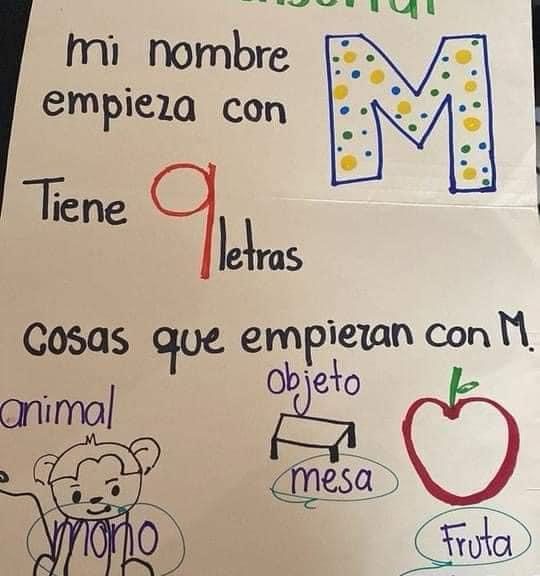 mi nombre
empieza con
M
Tiene 9 letras
cosas que empiezan con M.
animal
objeto
mesa
mono
Fruta